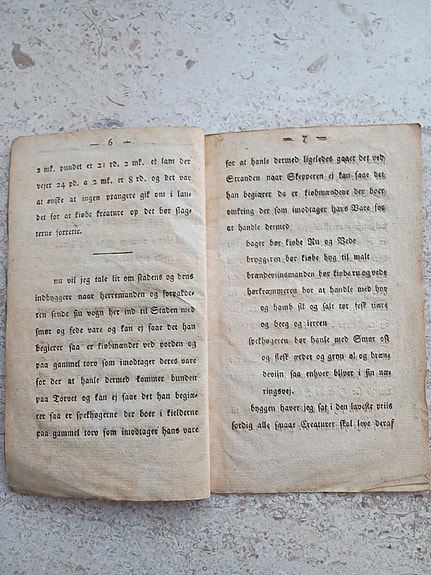 — 6 —
2 mk. pundet er 21 rd. 2 mk. et lam der
vejer 24 pd. a 2 mk. er 8 rd. og det var
at ønske at ingen prangere gik om i lan-
det for at kiøbe kreature op det bør slag-
terne forrette.
nu vil jeg tale lit om stadens og dens
indbyggere naar herremanden og forpakde-
ren sende sin vogn her ind til Staden med
smør og fede vare og kan ej faae det han
begierer saa er kiøbmændet ved porden og
paa gammel torv som imodtager deres vare
for der at hanle dermed kommer bunden
paa Torvet og kan ej faae det han begiæ-
rer saa er spekhøgerne der boer i kielderne
paa gammel torv som imodtager hans vare
— 7 —
for at hanle dermed ligeledes gaaer det ved
Stranden naar Skepperen ej kan faae det
han begiærer da er kiøbmændene der boer
omkring der som imodtager hans Vare for
at handle dermed
bager bør kiøbe Ru og Vede
bryggeren bør kiøbe byg til malt
brændevinsmanden bør kiøbe ru og vede
hørkræmmeren bør at handle med hør
og hamb sil og salt tør fesk tiære
og beeg og jerren
spekhøgeren bør hanle med Smør ost
og flesk ærder og gryn øl og bræn-
devijn saa enhver bliver i sin næ-
ringsvej.
byggen haver jeg sat i den laveste priis
fordig alle smaae Creaturer skal leve deraf